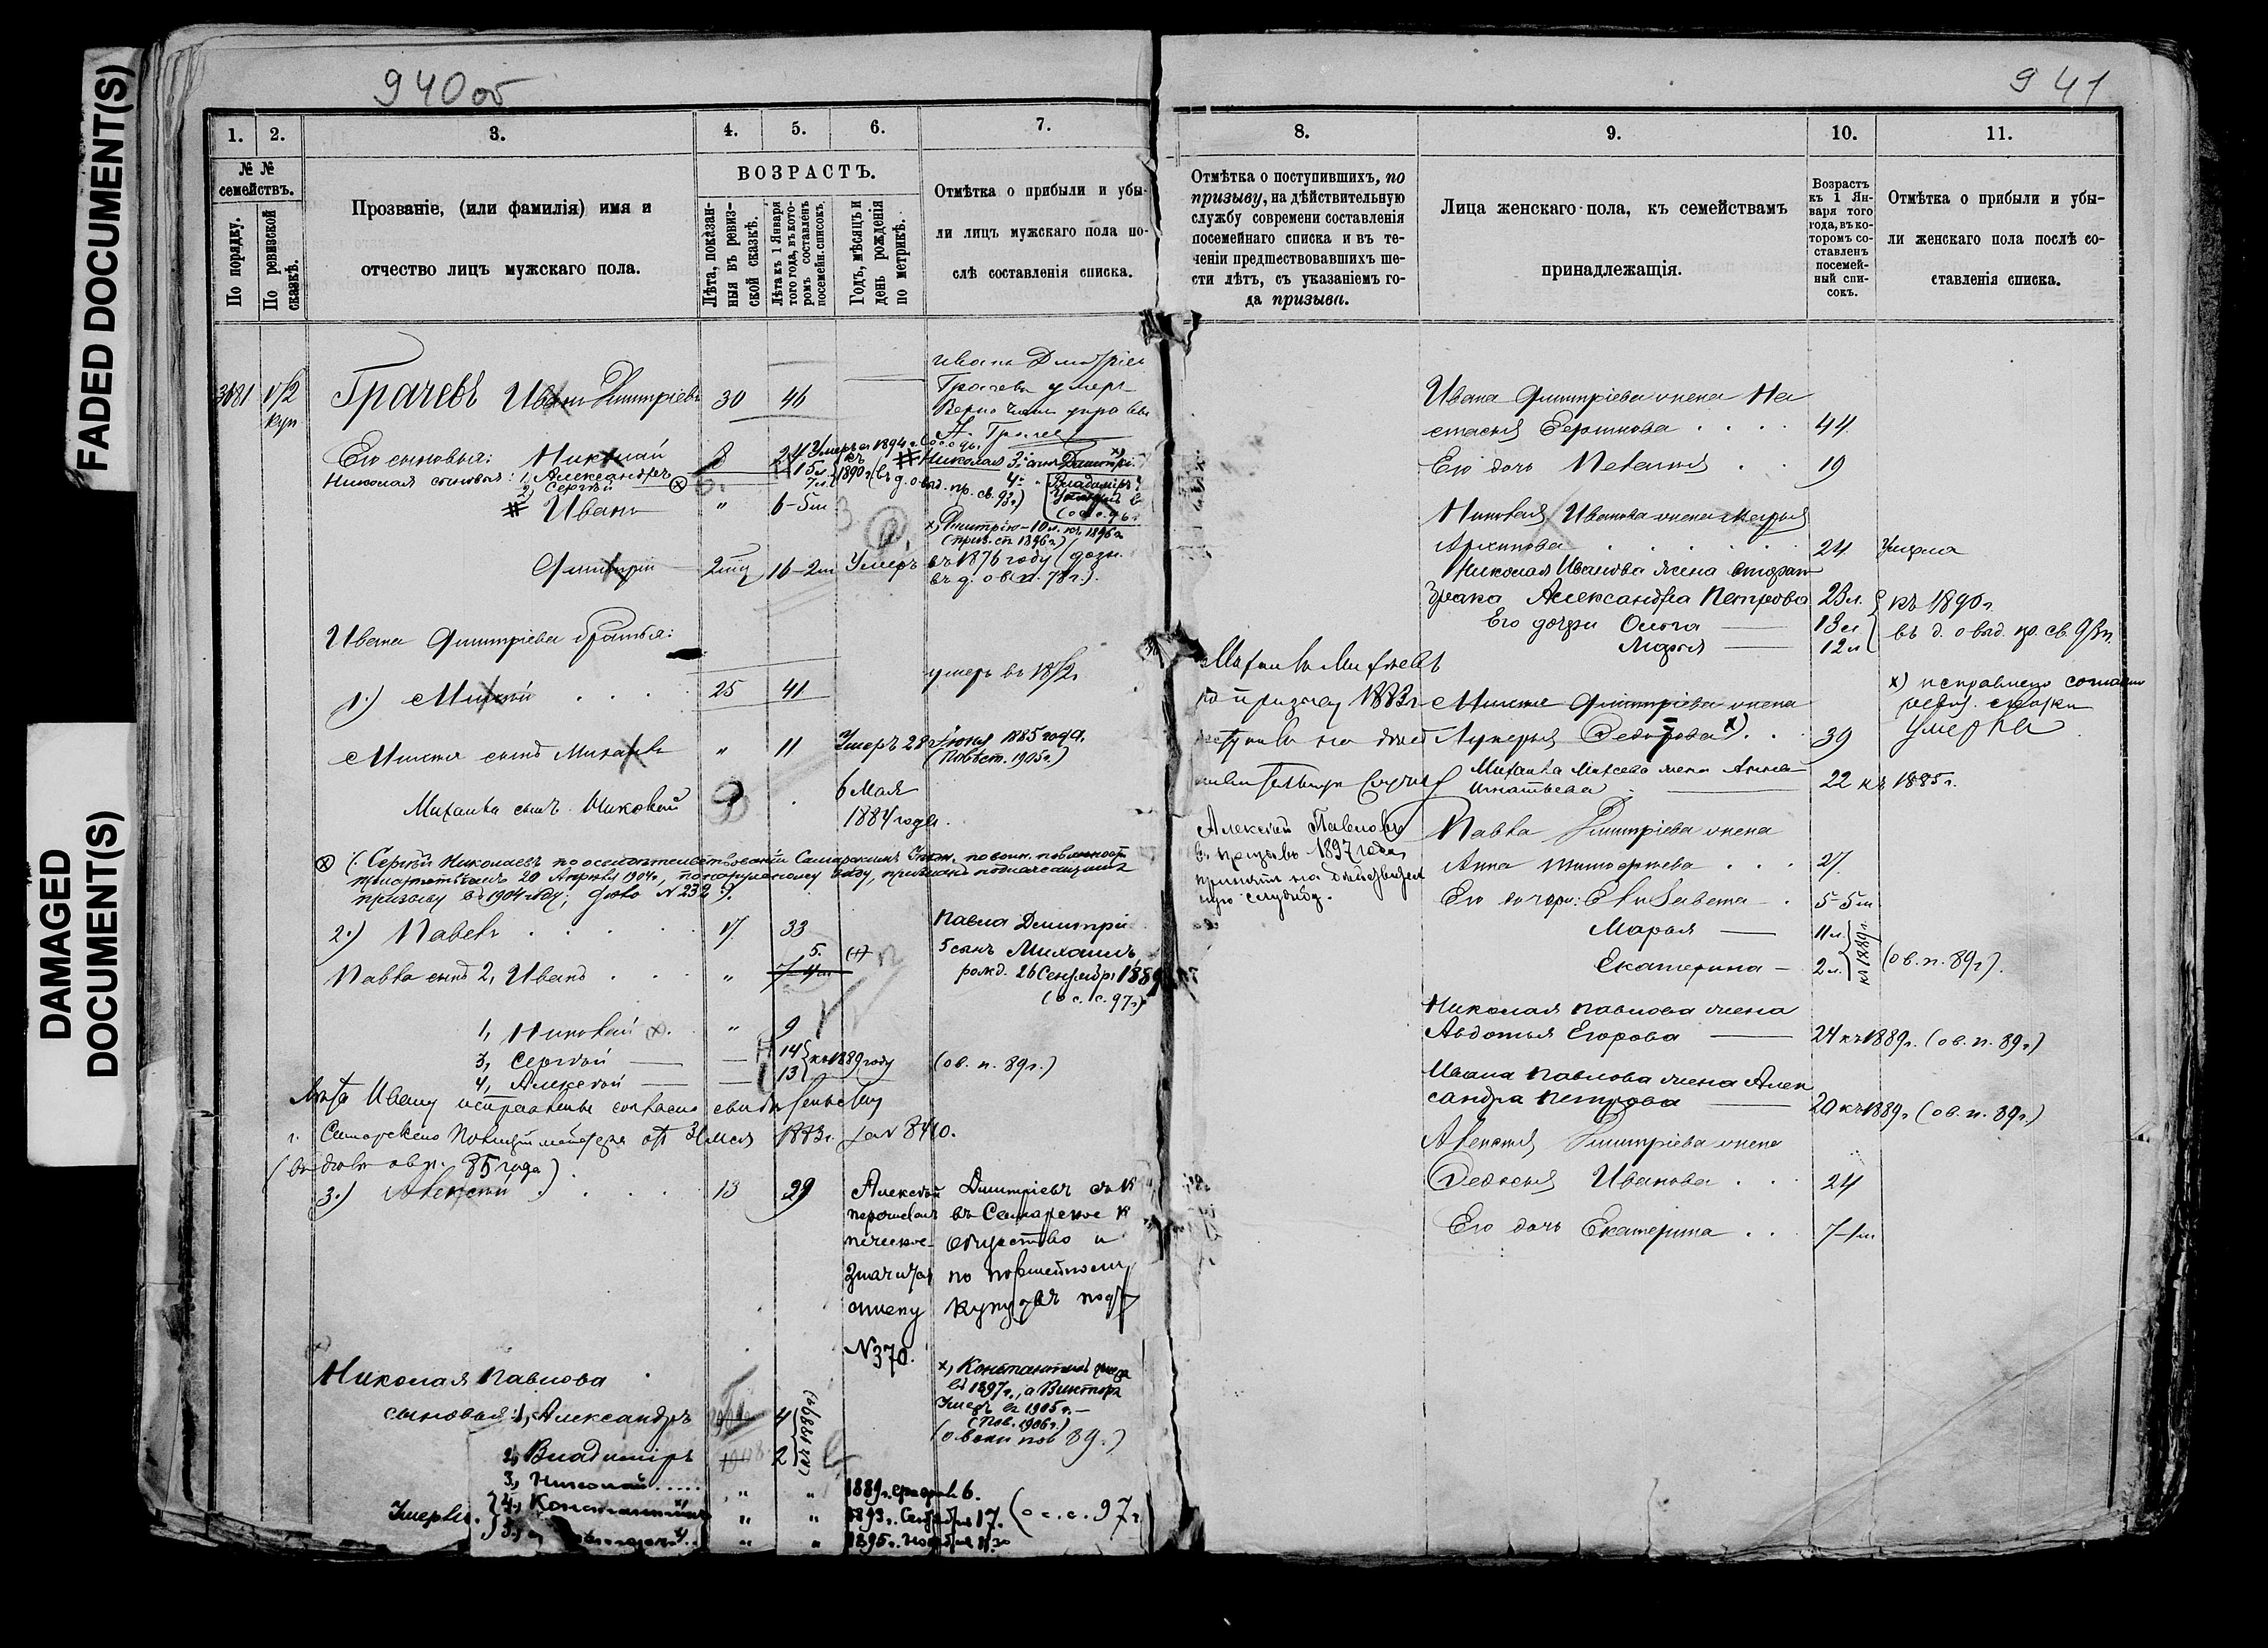 FADED DOCUMENT(S)
DAMAGED
DOCUMENT(S)
940 об
1.
2.
3.
4.
5.
6.
7.
№ №
семействъ.
По порядку.
По ревизской
сказкѣ.
Прозваніе, (или фамилія) имя и
отчество лицъ мужскаго пола.
ВОЗРАСТЪ.
Лѣта, показан-
ныя въ ревиз-
ской сказкѣ.
Лѣта къ 1 Января
того года, въ кото-
ромъ составленъ
посемейн. списокъ.
Годъ, мѣсяцъ и
день рожденія
по метрикѣ.
Отмѣтка о прибыли и убы-
ли лицъ мужскаго пола по-
слѣ составленія списка.
3181
куп
Грачевъ Иванъ Дмитріевъ 30 46
Иванъ Дмитріев
Грачевъ умеръ
Его сыновья: Николай 8 24 Умеръ въ 1894 г.
Николая сыновья: 1, Александръ 15 л.
2, Сергѣй 7 л. къ 1890 г.
# Николая 3й сынъ Дмитрій
4й Владиміръ
# Иванъ " 6-5 м
x) Дмитрію - 10 л. къ 1896 г.
Дмитрій 2 мц 16-2 м Умеръ въ 1876 году
въ д. о в. п. 78 г.).
Ивана Дмитріева братья:
1.) Михей 25 41
умеръ въ
Михея сынъ Михаилъ " 11 Умеръ 28 Іюня 1885 года.
(Повѣст. 1905 г.)
Михаила сынъ Николай 6 Мая
1884 года.
Сергѣй Николаевъ по освидѣтельствованіи Самарскимъ
20 Апрѣля 1904 г., по наружному виду, признанъ подлежащимъ
призыву въ 1904 году; дѣло № 232
2.) Павелъ 17 33
Павла Дмитрі
5 сынъ Михаилъ,
рожд. 26 Сентябр. 1889
(о с. с. 97 г.)
Павла сынъ 2, Иванъ " 5.
1, Николай " 9
3, Сергѣй — 14
4, Алексѣй — 13 къ 1889 году (о в. п. 89 г.)
Лѣта Ивану исправлены согласно свидѣтельству
г. Самарскаго Полицеймейстера отъ 31 мая 1883 г. за № 8410.
(въ дѣлѣ о в. п. 85 года)
3.) Алексѣй 13 29
Алексѣй Дмитріевъ
перечисленъ въ Самарское
ческое общество и
значится по посемейному
списку купцовъ подъ
№ 370.
Николая Павлова
сыновья: 1, Александръ 4
2, Владиміръ 2 (къ 1889 г.)
x, Константинъ умеръ
въ 1897 г., а Викторъ
Умеръ въ 1905 г. —
(Пов. 1906 г.)
(о воин пов 89 г.)
3, Николай " " 1889 г. Февраля 6.
Умерли. 4, Константинъ " " 1893 г. Сентября 17. (о с. с. 97 г.
5, " " 1895 г. Ноября
941
8.
9.
10.
11.
Отмѣтка о поступившихъ, по
призыву, на дѣйствительную
службу современи составленія
посемейнаго списка и въ те-
ченіи предшествовавшихъ ше-
сти лѣтъ, съ указаніемъ го-
да призыва.
Лица женскаго пола, къ семействамъ
принадлежащія.
Возрастъ
къ 1 Ян-
варя того
года, въ ко-
торомъ со-
ставленъ
посемей-
ный спи-
сокъ.
Отмѣтка о прибыли и убы-
ли женскаго пола послѣ со-
ставленія списка.
Ивана Дмитріева жена На
стасья 44
Его дочь Пелагея 19
Николая Иванова жена Марья
Архипова 24 Умерла
Николая Иванова жена втораго
брака Александра Петрова 23 л. къ 1890 г.
Его дочери Ольга 13 л.
Марья 12 л.
въ д. о выд. пр. св. 93 г.
Михаилъ Михеевъ
по призыву 1883 г
Михея Дмитріева жена
Лукерья Федорова x) 39
x) исправлено согласно
ревиз. сказки
Умерла
Михаила Михеева жена Анна
Игнатьева 22 къ 1885 г.
Алексѣй Павловъ
въ призывъ 1897 года
принятъ на дѣйствител
ную службу.
Павла Дмитріева жена
Анна Тимофеева 27
Его дочери: Елизавета 5-5 м
Марья 11 л.
Екатерина 2 л. къ 1889 г. (о в. п. 89 г.).
Николая Павлова жена
Авдотья Егорова 24 къ 1889 г. (о в. п. 89 г.)
Ивана Павлова жена Алек
сандра Петрова 20 къ 1889 г. (о в. п. 89 г.)
Алексѣя Дмитріева жена
Федосья Иванова 24
Его дочь Екатерина 7-1 м